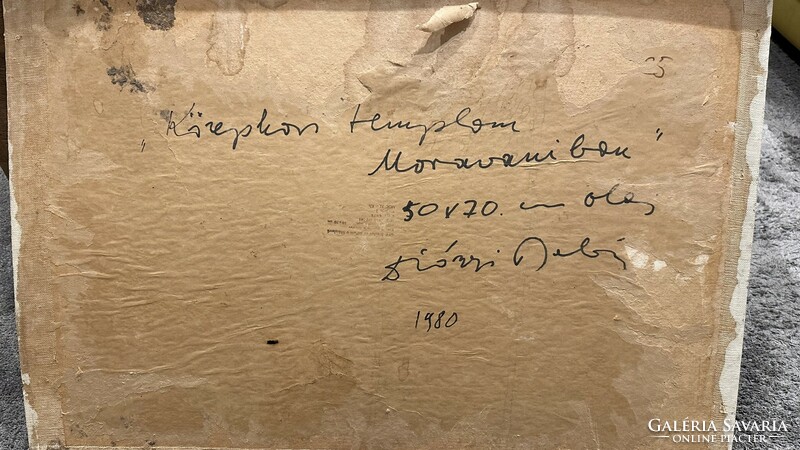 „Középkori templom
Moravaniban"
50x70. cm olaj
Diószi
1980
GALÉRIA SAVARIA
ONLINE PIACTÉR